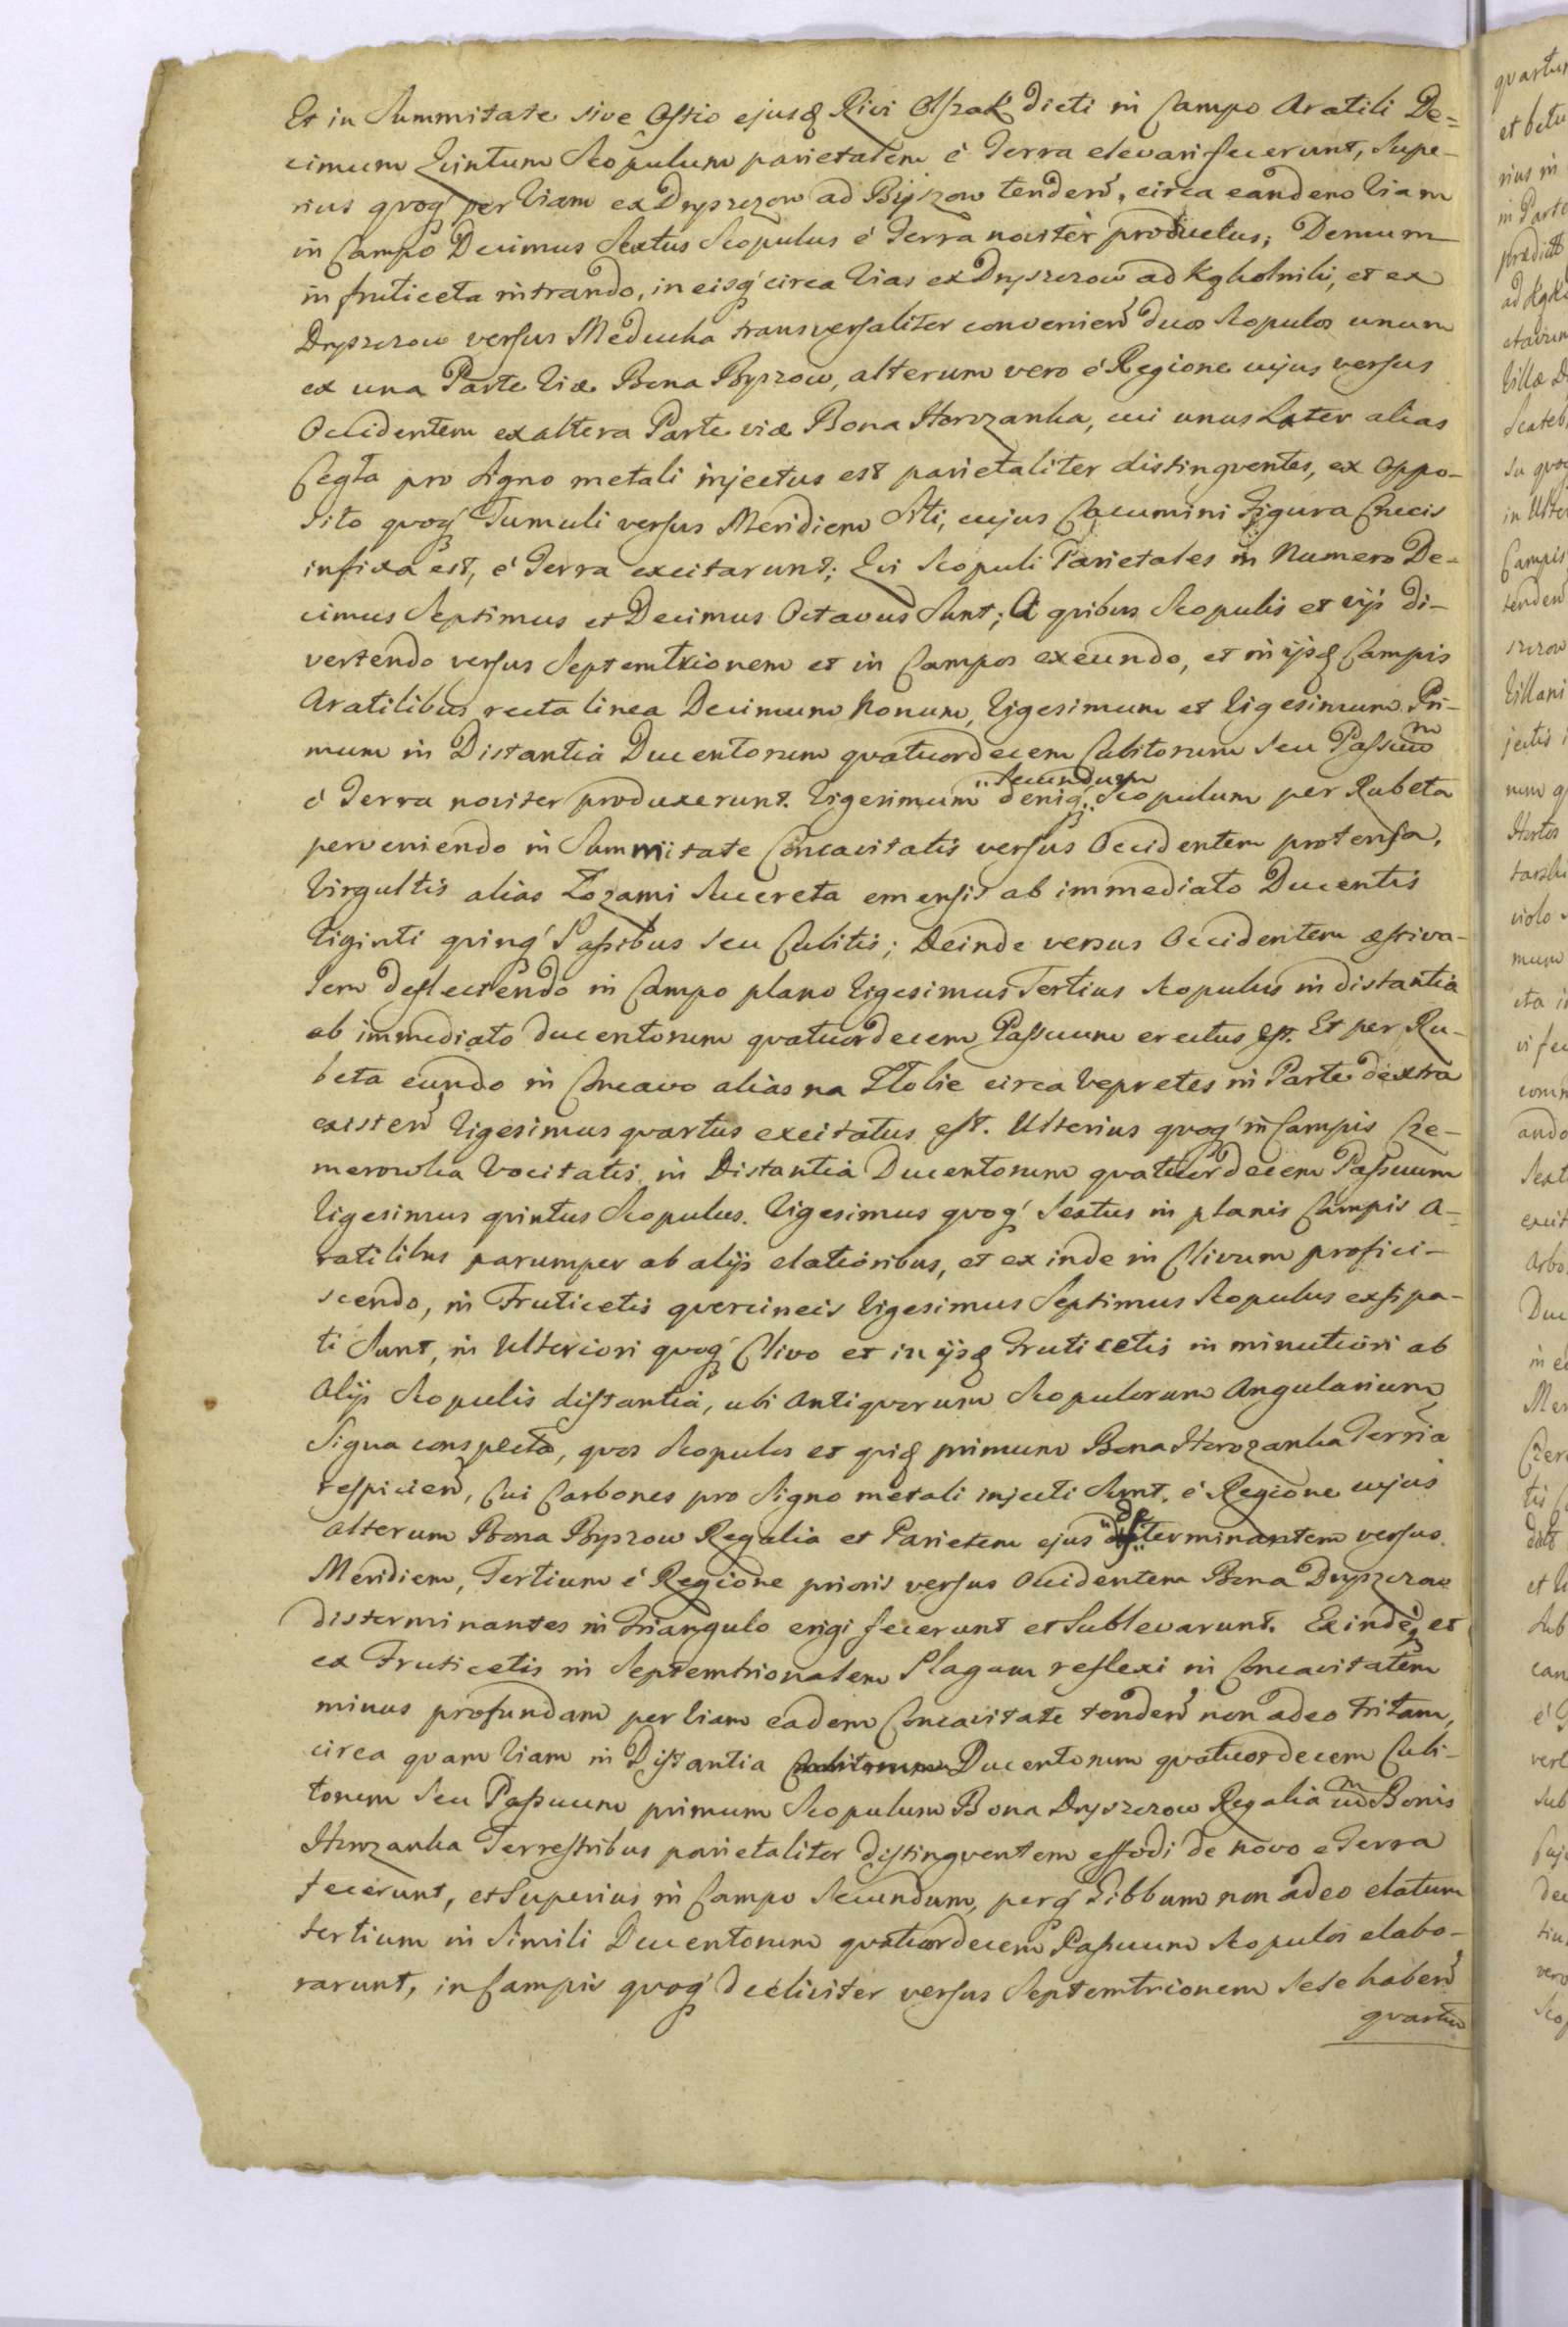 Et in Summitate sive Ostio ejusq Rivi Olszak dicti in Campo Aratili De=
cimum Qvintum Scopulum parietalem é Terra elevari fecerunt, Supe-
rius qvoq' per Viam ex Dryszczow ad Byszow tenden', circa eandem Viam
in Campo Decimus Sextus Scopulus é Terra noviter productus; Demum
in fruticeta intrando, in eisq' circa Vias ex Dryszczow ad Kąkolniki, et ex
Dryszczow versus Meducha transversaliter convenien' duos Scopulos unum
ex una Parte Viæ Bona Byszow, alterum vero é Regione cujus versus
Occidentem ex altera Parte viæ Bona Horozanka, cui unus Later alias
Cegła pro Signo metali injectus est parietaliter distingventes, ex Oppo-
sito qvoq' Tumuli versus Meridiem Siti, cujus Cacumini Figura Crucis
infixa est, é Terra excitarunt; Qvi Scopuli Parietales in Numero De-
cimus Septimus et Decimus Octavus Sunt; A qvibus Scopulis et vijs di-
vertendo versus Septemtrionem et in Campos exeundo, et in ijsq Campis
Aratilibus recta linea Decimum Nonum, Vigesimum et Vigesimum Pri-
mum in Distantia Ducentorum qvatuordecem Cubitorum seu Passuum
é Terra noviter produxerunt. Vigesimum "Secundum" deniq' Scopulum per Rubeta
perveniendo in Summitate Concavitatis versus Occidentem protensa,
Virgultis alias Łozami Succreta emensis ab immediato Ducentis
Viginti qvinq' Passibus seu Cubitis; Deinde versus Occidentem æstiva-
lem deflectendo in Campo plano Vigesimus Tertius Scopulus in distantia
ab immediato ducentorum qvatuordecem Passuum erectus est. Et per Ru-
beta eundo in Concavo alias na Żłobie circa Vepretes in Parte dextra
existen' Vigesimus qvartus excitatus est. Ulterius qvoq' in Campis Cze-
merowka Vocitatis in Distantia Ducentorum qvatuordecem Passuum
Vigesimus qvintus Scopulus. Vigesimus qvoq' Sextus in planis Campis A=
ratilibus parumper ab alijs elatioribus, et ex inde in Clivum profici-
scendo, in Fruticetis qvercineis Vigesimus Septimus Scopulus exsipa-
ti Sunt, in Ulteriori qvoq' Clivo et in ijsq Fruticetis in minutiori ab
Alijs Scopulis distantia, ubi Antiqvorum Scopulorum Angularium
Signa conspecta, qvos Scopulos et qviq primum Bona Horozanka Terria
respicien', Cui Carbones pro Signo metali injecti Sunt. é Regione cujus
Alterum Bona Byszow Regalia et Parietem ejus determinantem versus
Meridiem, Tertium é Regione prioris versus Occidentem Bona Dryszczow
disterminantes in Triangulo erigi fecerunt et Sublevarunt. Exindeq et
ex Fruticetis in Septemtrionalem Plagam reflexi in Concavitatem
minus profundam per Viam eadem Concavitate tenden' non adeo tritam,
circa qvam Viam in Distantia Ducentorum qvatuordecem Cubi-
torum Seu Passuum primum Scopulum Bona Dryszczow Regalia cum Bonis
Horozanka Terrestribus parietaliter distingventem effodi de novo e Terra
fecerunt, et Superius in Campo Secundum, perq' Gibbum non adeo elatum
tertium in Simili Ducentorum qvatuordecem Passuum Scopulos elabo-
rarunt, in Campis qvoq' decliviter versus Septemtrionem sese haben'
qvartum